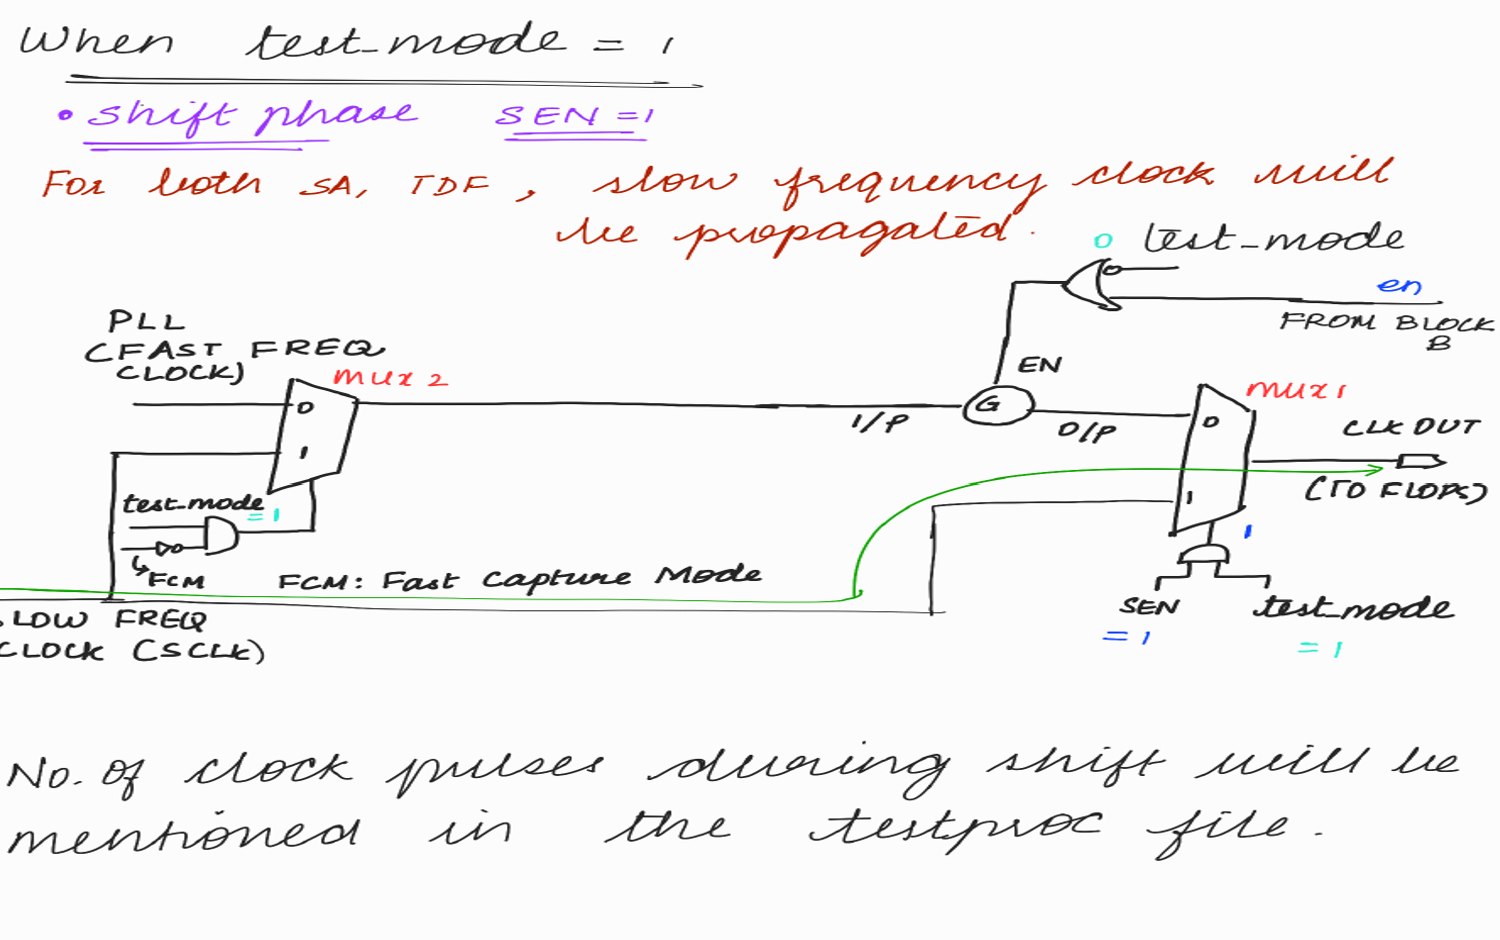 When test_mode = 1
• shift phase SEN = 1
For both SA, TDF, slow frequency clock will
be propagated.
0 test_mode
en
FROM BLOCK
B
PLL
(FAST FREQ
CLOCK)
mux 2
EN
mux 1
0
I/P
G
O/P
0
CLK OUT
1
(TO FLOPS)
test_mode
= 1
1
1
FCM
FCM: Fast Capture Mode
SEN
test_mode
= 1
= 1
LOW FREQ
CLOCK (SCLK)
No. of clock pulses during shift will be
mentioned in the testproc file.